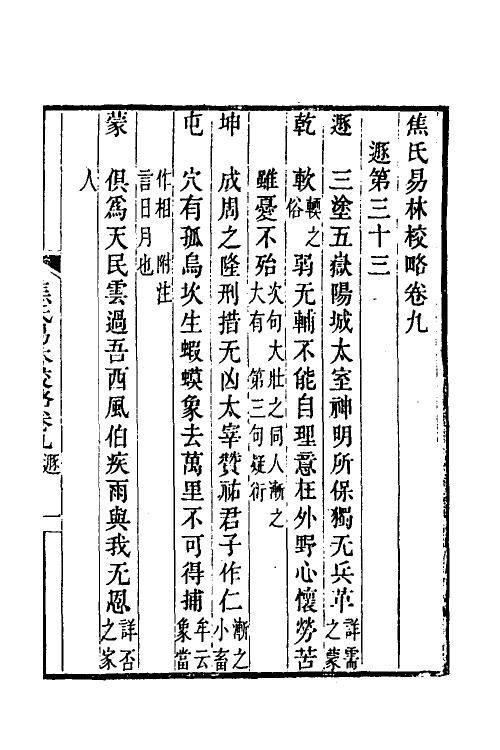 焦氏易林校略卷九
遯第三十三
遯　三塗五嶽陽城太室神明所保獨无兵革詳需之蒙
乾　軟輭之俗弱无輔不能自理意在外野心懷勞苦
雖憂不殆次句大壯之同人漸之大有　第三句疑衍
坤　成周之隆刑措无凶太宰贊祐君子作仁漸之小畜
屯　穴有孤烏坎生蝦蟆象去萬里不可得捕牟云象當
作相　附注言日月也
蒙　俱爲天民雲過吾西風伯疾雨與我无恩詳否之家
人
焦氏易林校略卷九　遯　一